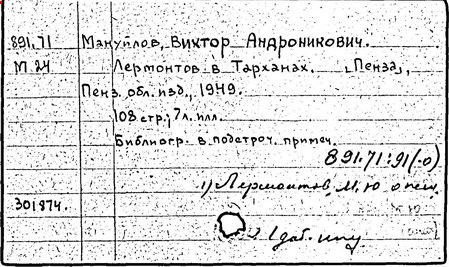 891.71 Мануйлов, Виктор Андроникович.
М.24 Лермонтов в Тарханах. „Пенза",
Пенз. обл. изд., 1949.
108 стр.; 7 л. илл.
Библиогр. в подстроч. примеч.
891.71:91(-о)
1) Лермонтов, М. Ю о нем.
301874.